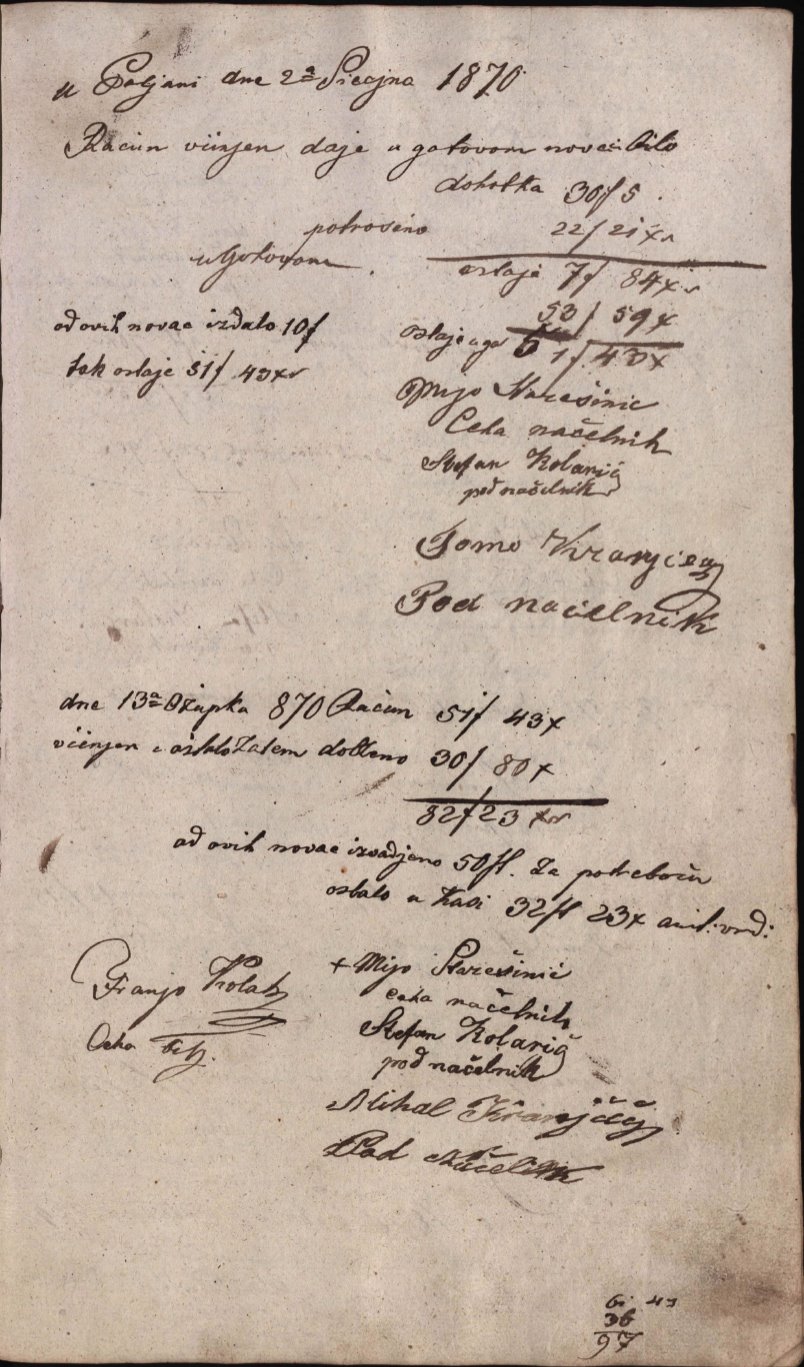 u Poljani dne 2ª Siečjna 1870
Račun včinjen daje u gotovom novcu bilo
dohotka 30f 5
potrošeno 22f 21x
u Gotovom ostaje 7f 84x
53f 59x
od ovih novac izdato 10f
ostaje u go 61f 43x
tak ostaje 51f 43xr
Mijo Starešinic
Ceha načelnih
Stefan Kolarić
podnačelnik
Tomo Kranjčec
Pod načelnik
dne 13ª Ožujka 870 Račun 51f 43x
včinjen i ostalo zatem došleno 30f 80x
82f 23xr
od ovih novac izvadjeno 50fl. za potreboću
ostalo u kasi 32fl 23x aust: vrd:
+ Mijo Starešinić
ceha načelnih
Franjo Kolar
Stefan Kolarić
Ceha
pod načelnik
Mihal Kranjčić
Pod načelnik
61 43
36
97